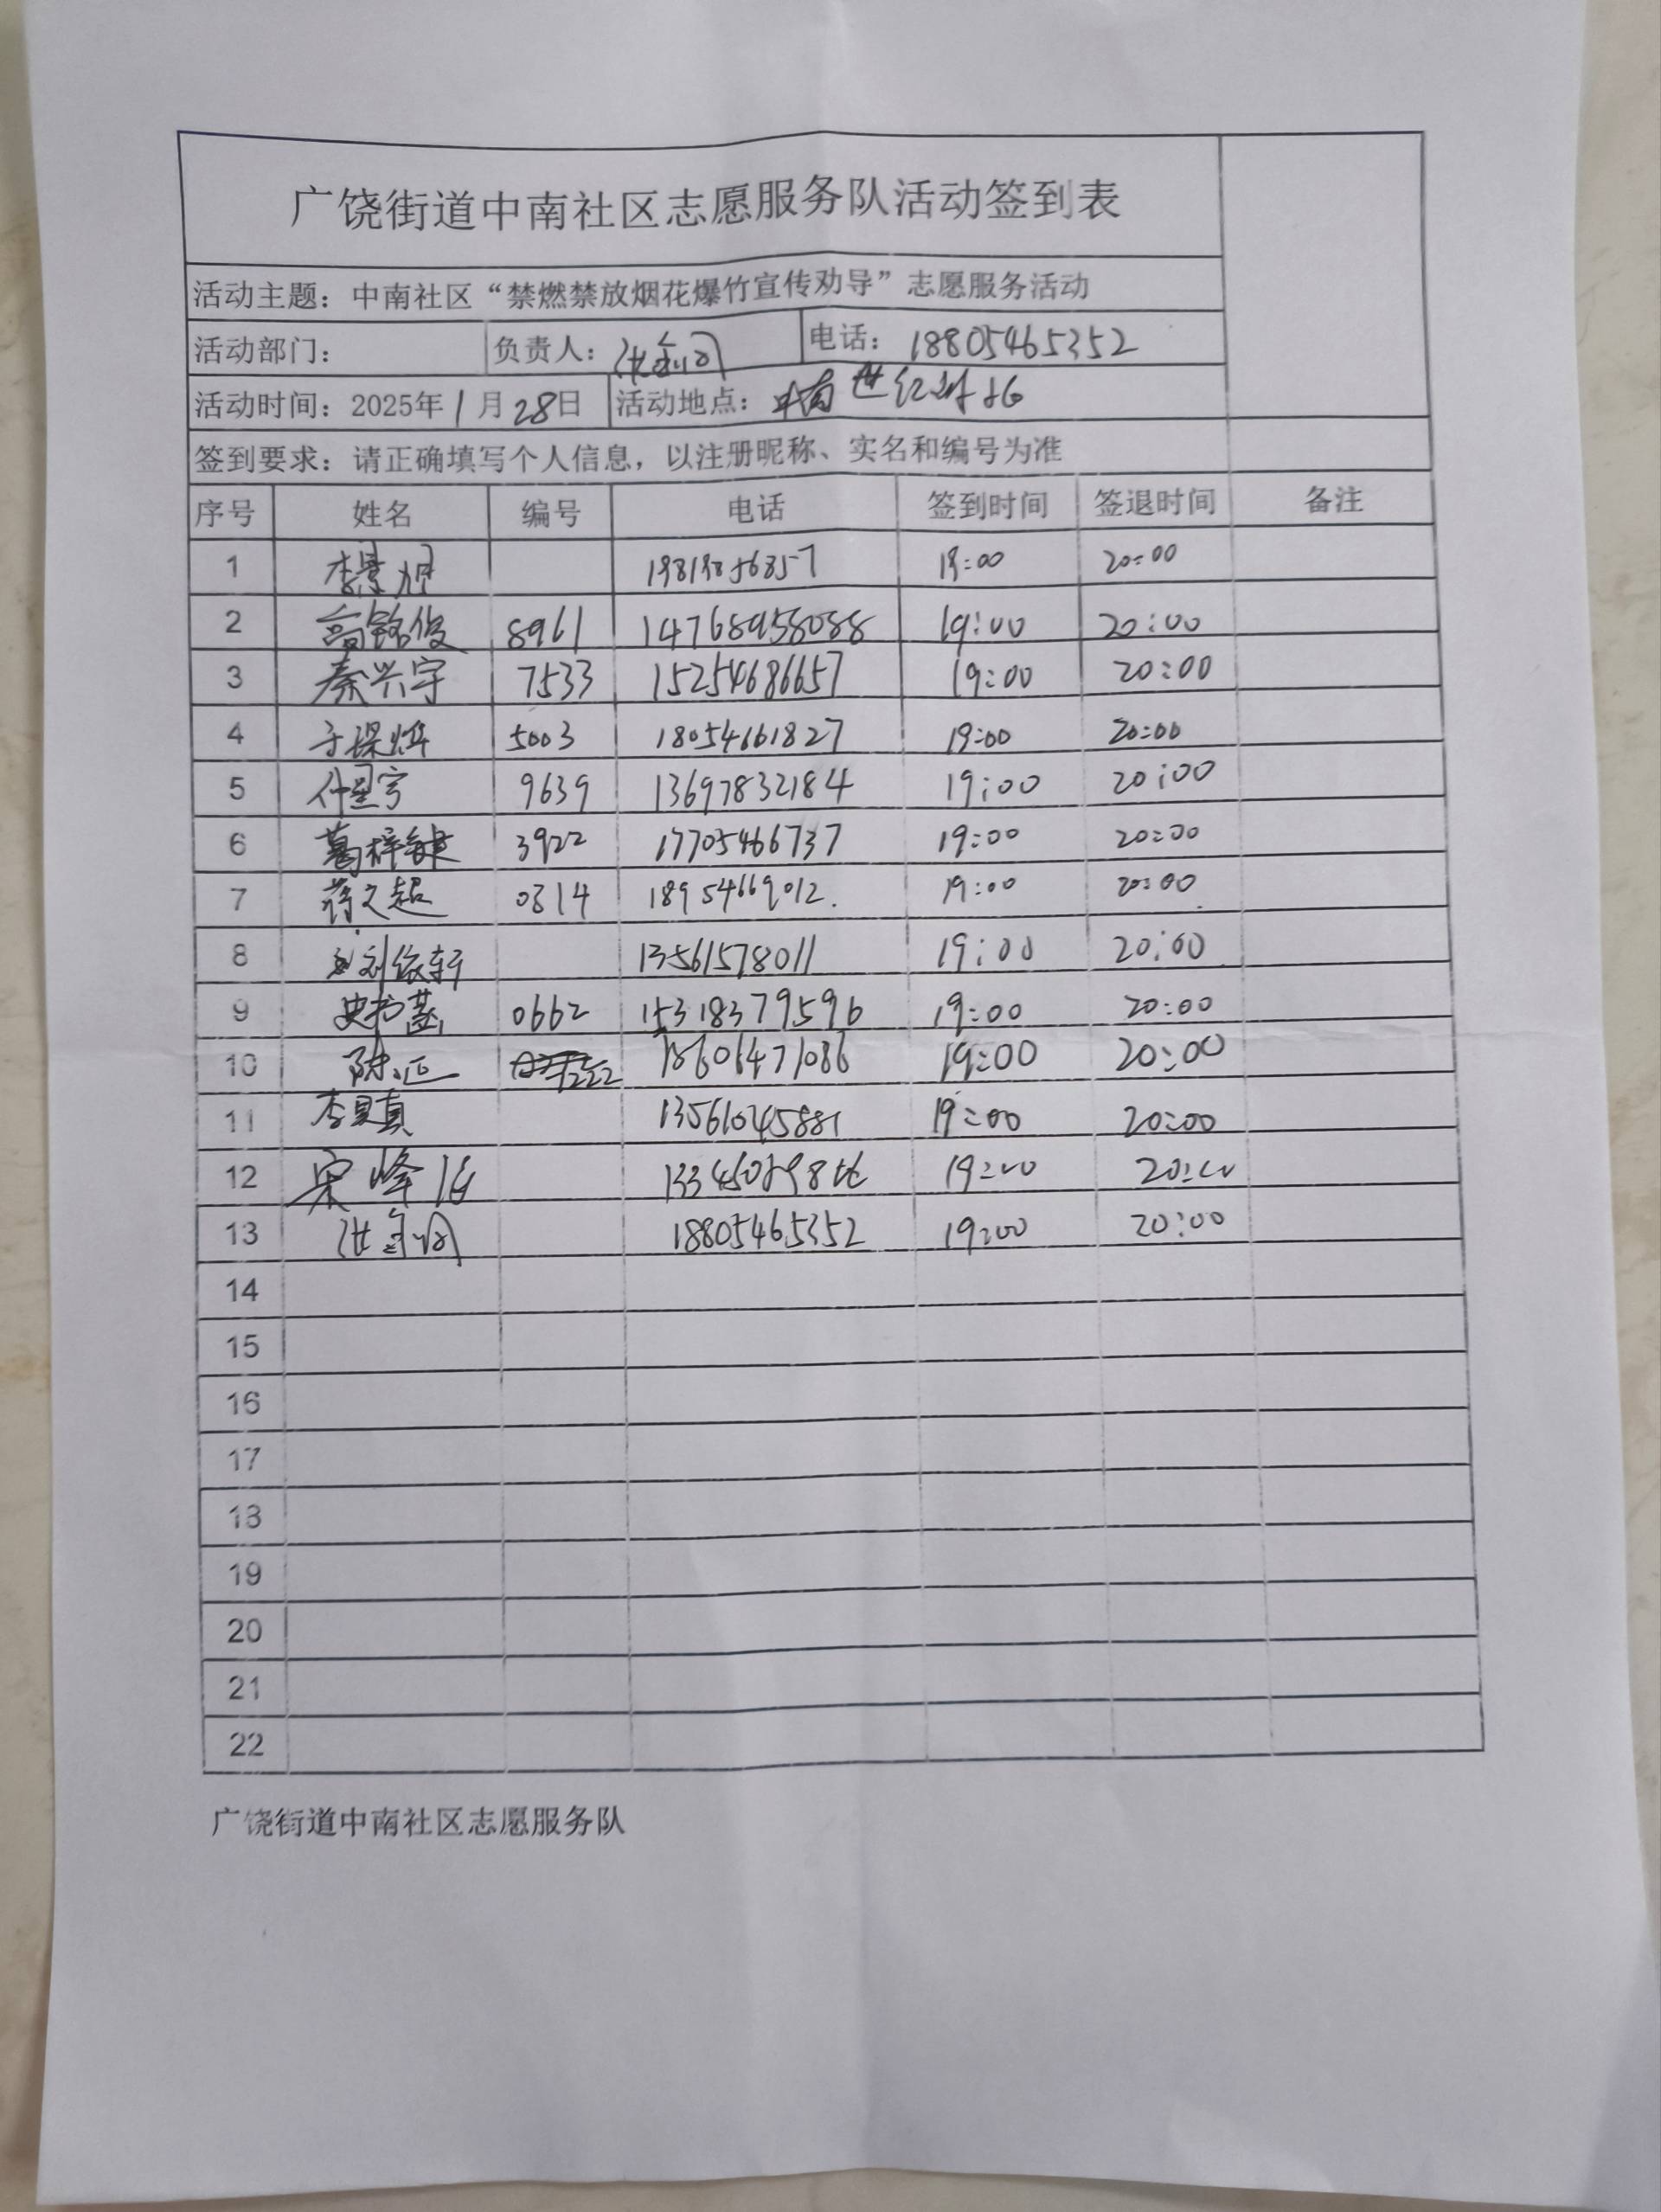 广饶街道中南社区志愿服务队活动签到表
活动主题：中南社区“禁燃禁放烟花爆竹宣传劝导”志愿服务活动
活动部门： 负责人： 电话：18805465352
活动时间：2025年1月28日 活动地点：中南世纪城
签到要求：请正确填写个人信息，以注册昵称、实名和编号为准
序号 姓名 编号 电话 签到时间 签退时间 备注
1 19:00 20:00
2 高铭俊 8961 14768958088 19:00 20:00
3 秦兴宇 7533 15254686657 19:00 20:00
4 5003 18054661827 19:00 20:00
5 9639 13697832184 19:00 20:00
6 葛梓健 3922 17705466737 19:00 20:00
7 蒋文超 0814 18954669012. 19:00 20:00
8 13561578011 19:00 20:00
9 0662 15318379596 19:00 20:00
10 19:00 20:00
11 19:00 20:00
12 19:00 20:00
13 18805465352 19:00 20:00
14
15
16
17
18
19
20
21
22
广饶街道中南社区志愿服务队